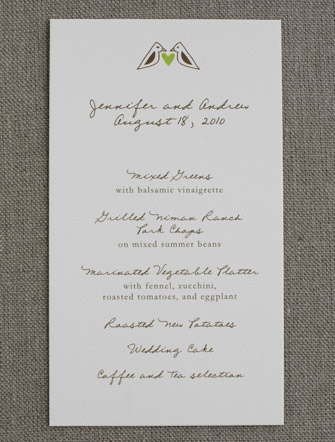 Jennifer and Andrew
August 18, 2010
Mixed Greens
with balsamic vinaigrette
Grilled Niman Ranch
Pork Chops
on mixed summer beans
Marinated Vegetable Platter
with fennel, zucchini,
roasted tomatoes, and eggplant
Roasted New Potatoes
Wedding Cake
Coffee and Tea selection